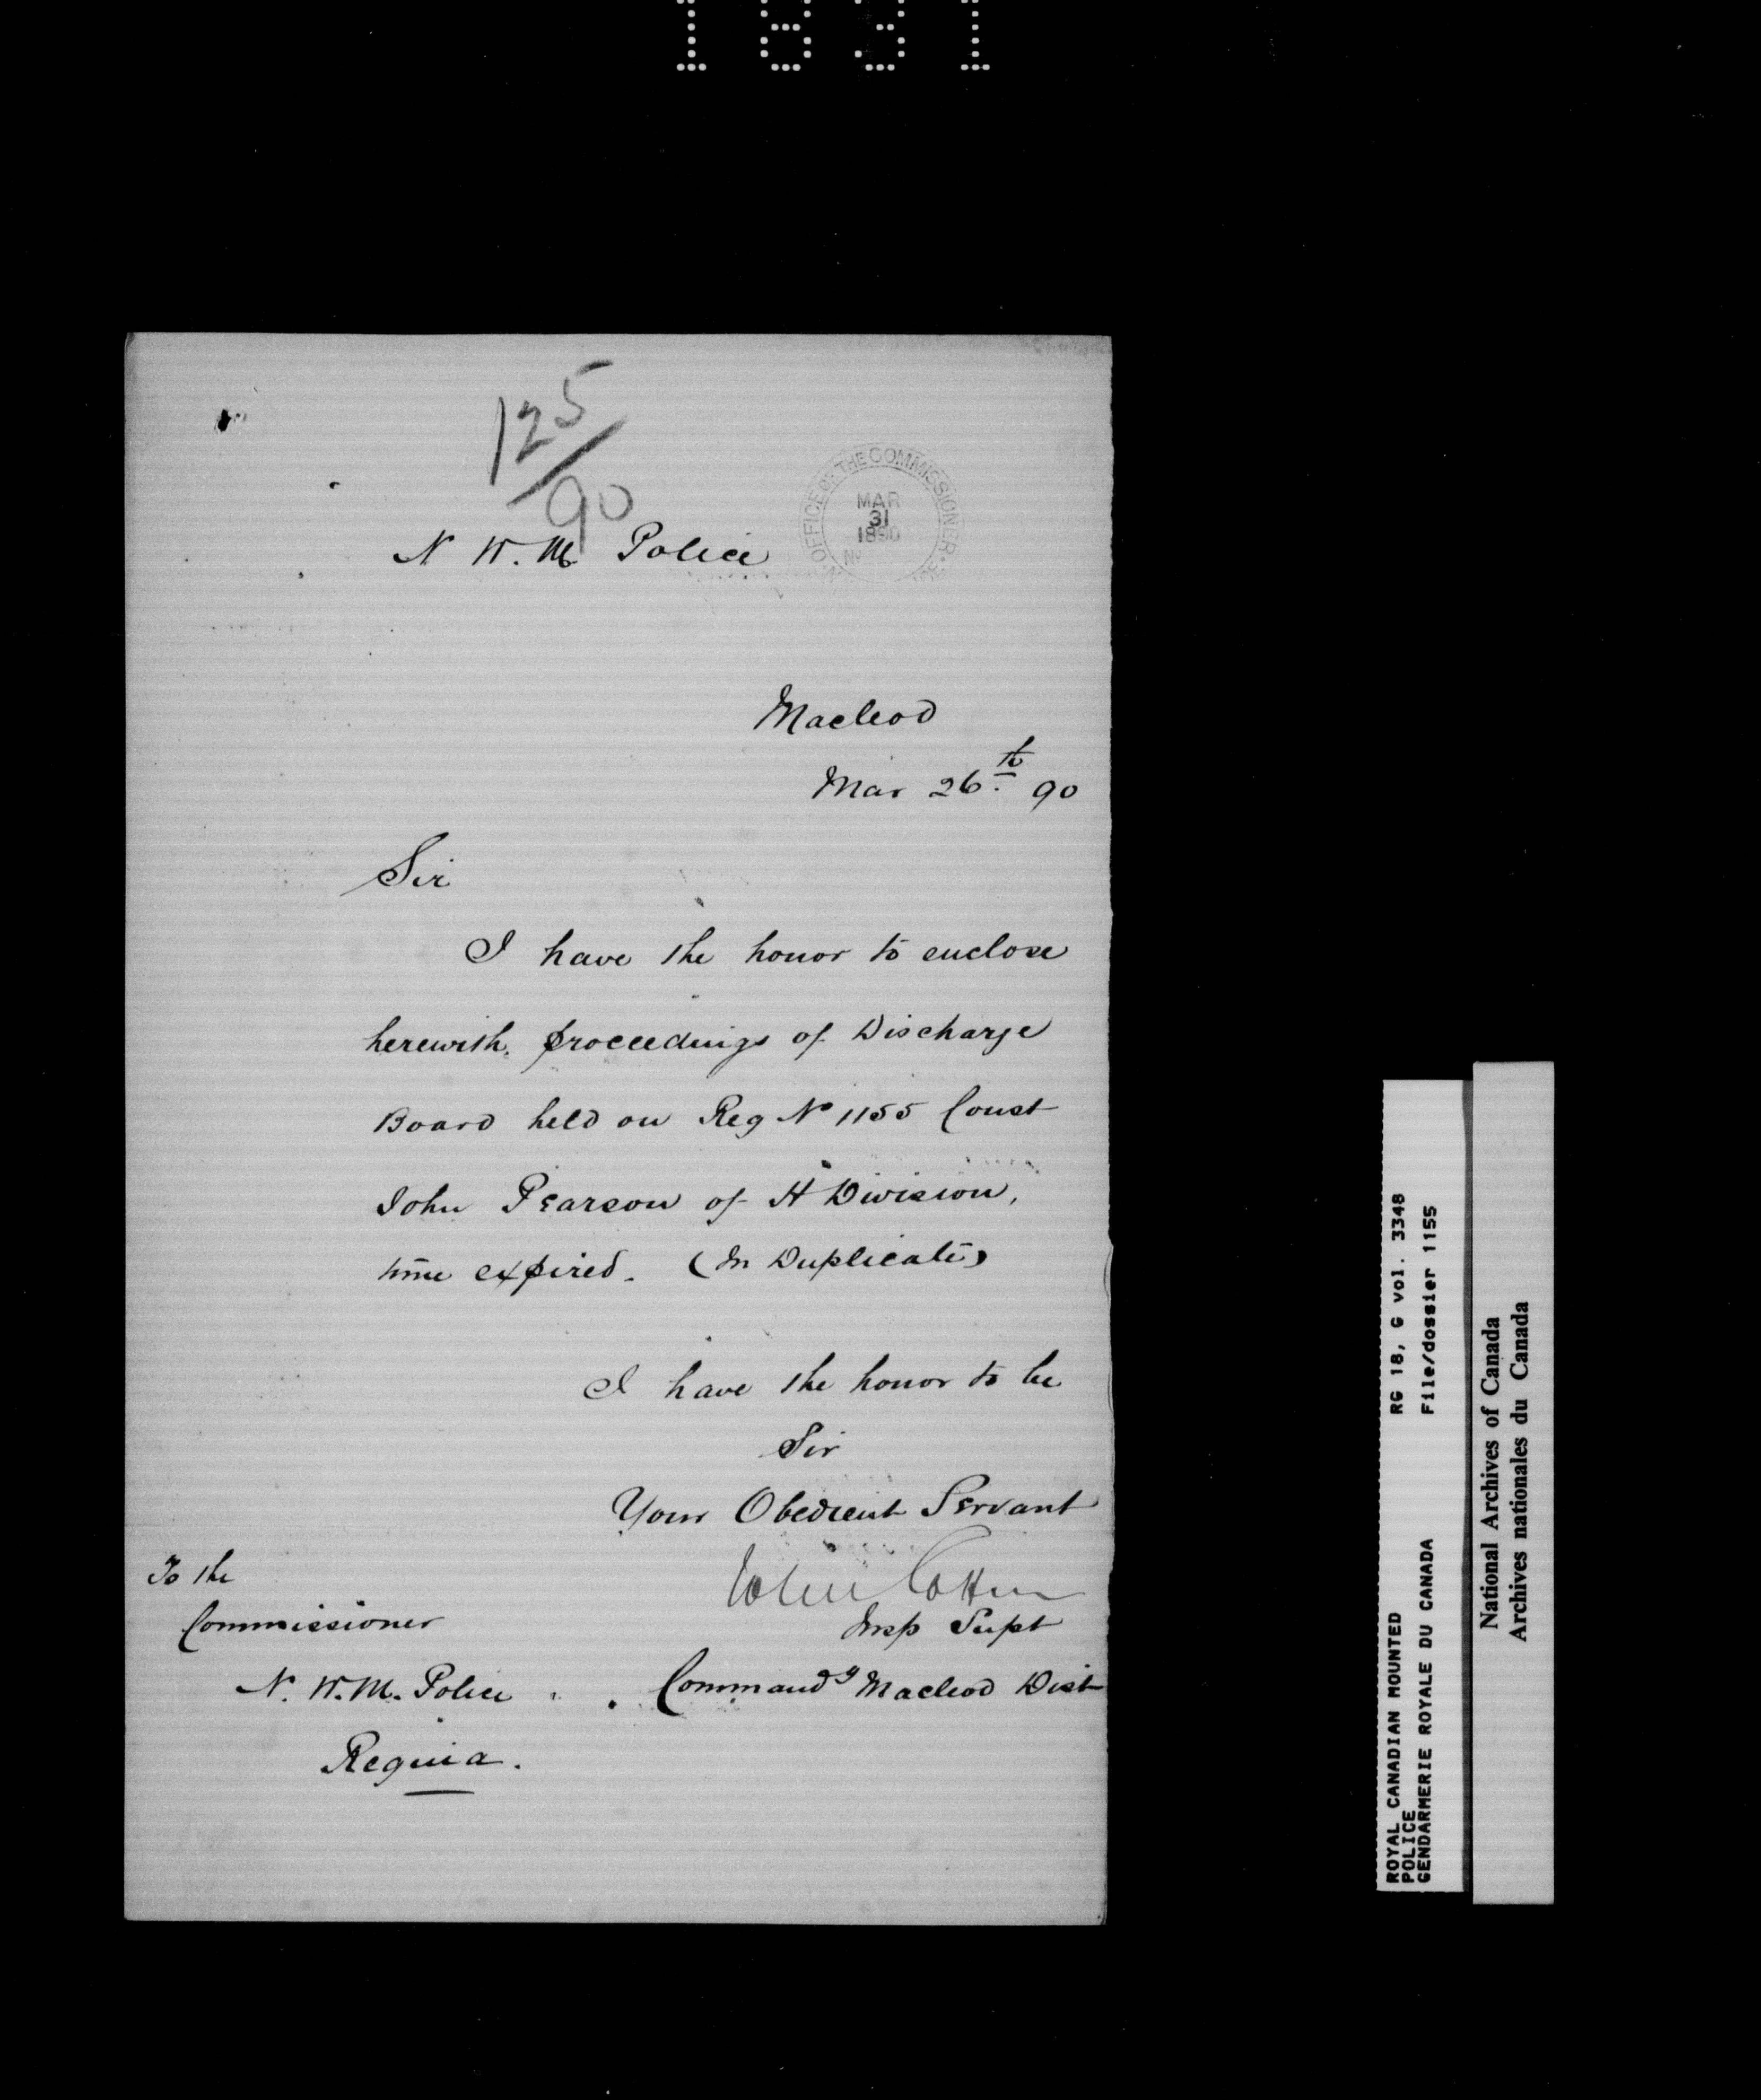 1831
125/90
OFFICE OF THE COMMISSIONER
MAR
31
1890
No
N. W. M. Police
Macleod
Mar 26th 90
Sir
I have the honor to enclose
herewith, proceedings of Discharge
Board held on Reg No 1155 Const
John Pearson of H Division,
time expired. (In Duplicate)
I have the honor to be
Sir
Your Obedient Servant
John Cotton
Insp Supt
Commandg Macleod Dist
To the
Commissioner
N. W. M. Police
Regina.
ROYAL CANADIAN MOUNTED RG 18, G vol. 3348
POLICE
GENDARMERIE ROYALE DU CANADA File/dossier 1155
National Archives of Canada
Archives nationales du Canada